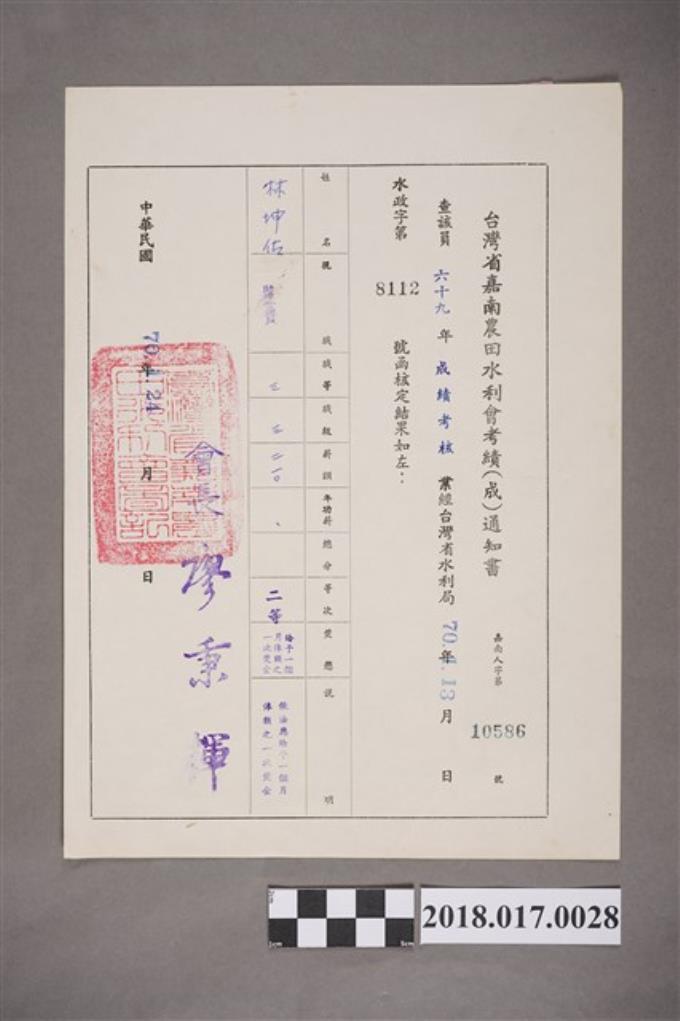 台灣省嘉南農田水利會考績(成)通知書
嘉南人字第 10586 號
查該員 六十九 年 成績考核 業經台灣省水利局 70.4.13 年 月 日
水政字第 8112 號函核定結果如左：
姓名 現職 職等 職級 薪額 年功薪 總分 等次 獎懲 說明
林坤佑 三 三 二一〇 、 二等 給予一個月俸額之一次獎金 依法應給予一個月俸額之一次獎金
會長 廖秉輝
中華民國 70.4.24 年 月 日
2018.017.0028
1cm
5cm